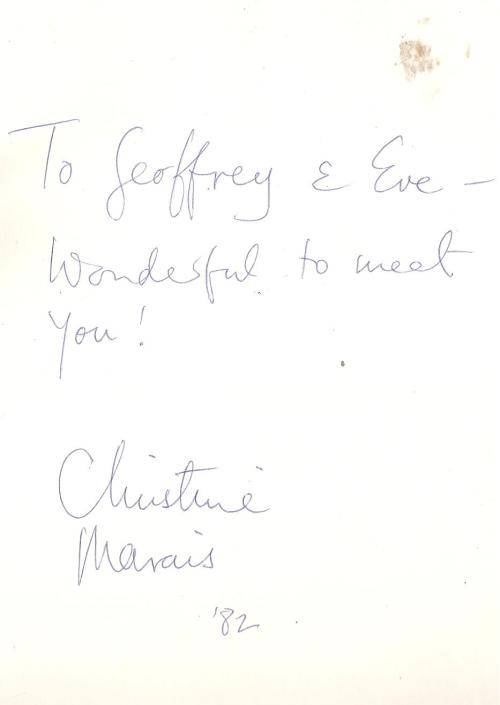 To Geoffrey & Eve –
Wonderful to meet
you!
Christine
Marais
'82